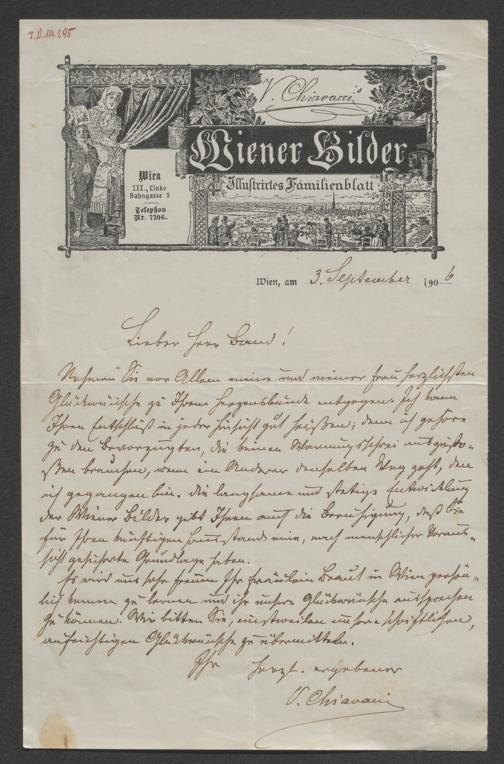 V. Chiavacci's
Wiener Bilder
Illustrirtes Familienblatt
Wien
III., Linke
Bahngasse 5
Telephon
Nr. 7706.
Wien, am 3. September 1906
Lieber Herr Band!
Nehmen Sie vor Allem meine und meiner Frau herzlichsten
Glückwünsche zu Ihrem Herzensbunde entgegen. Ich kann
Ihren Entschluß in jeder Hinsicht gut heißen; denn ich gehöre
zu den Bevorzugten, die keinen Warnungsschrei auszusto-
ßen brauchen, wenn ein Anderer denselben Weg geht, den
ich gegangen bin. Die langsame und stetige Entwicklung
der Wiener Bilder gibt Ihnen auch die Beruhigung, daß Sie
für Ihren künftigen Hausstand eine, nach menschlicher Voraus-
sicht gesicherte Grundlage haben.
Es wird uns sehr freuen Ihr Fräulein Braut in Wien persön-
lich kennen zu lernen und ihr unsere Glückwünsche aussprechen
zu können. Wir bitten Sie, einstweilen unsere schriftlichen,
aufrichtigen Glückwünsche zu übermitteln.
Ihr herzl. ergebener
V. Chiavacci